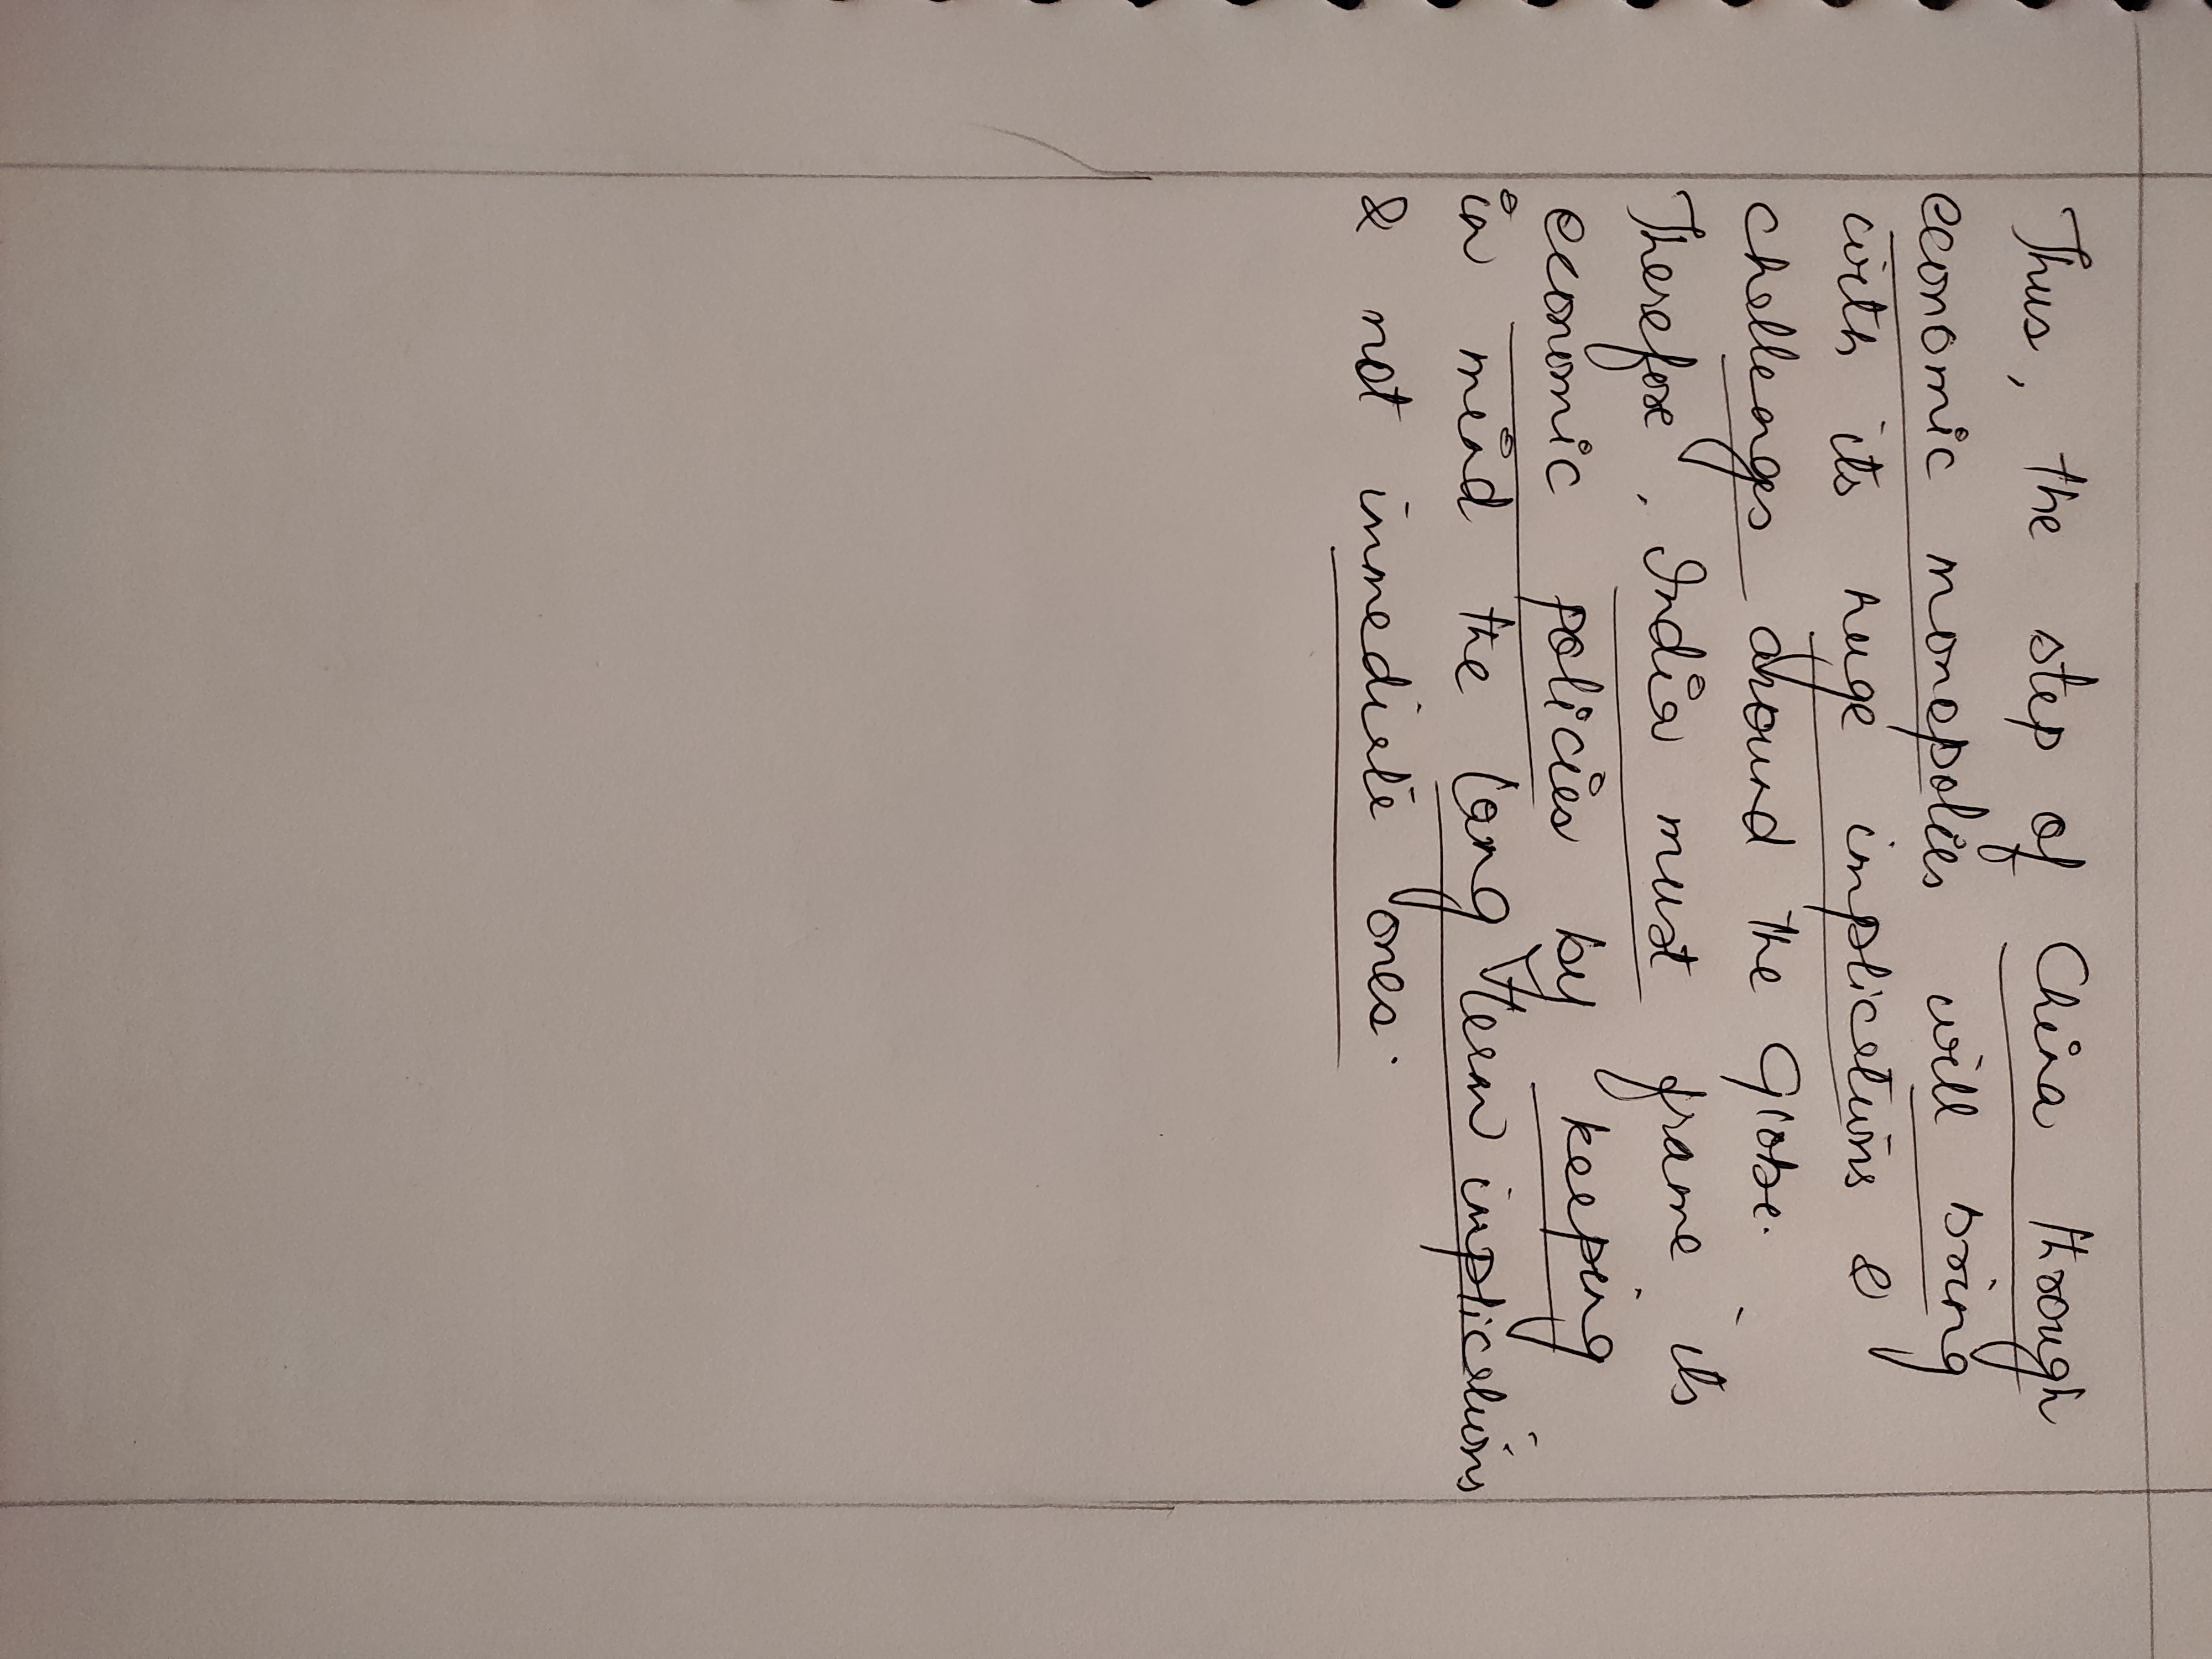 Thus, the step of China through
economic monopolies will bring
with its huge implications &
challenges around the Globe.
Therefore, India must frame its
economic policies by keeping
in mind the long term implications
& not immediate ones.